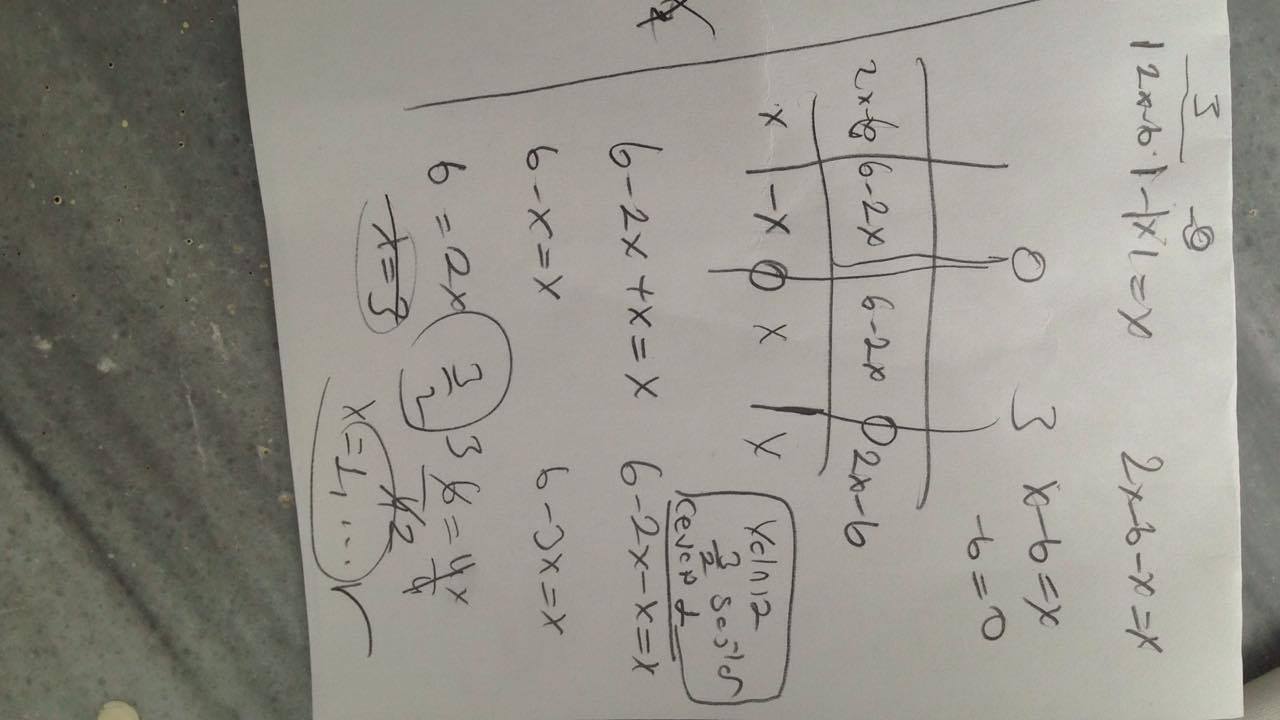 3 -0
|2x-6|-|x|=x 2x-6-x=x
0 3 x-6=x
-6=0
2x-6 6-2x 6-2x 0 2x-6
x -x 0 x x
Yalnız
3/2 sağlar
Cevap 1
6-2x+x=x 6-2x-x=x
6-x=x 6-3x=x
6=2x 3/2 3 6/42=4x/4
x=3 x=1,...